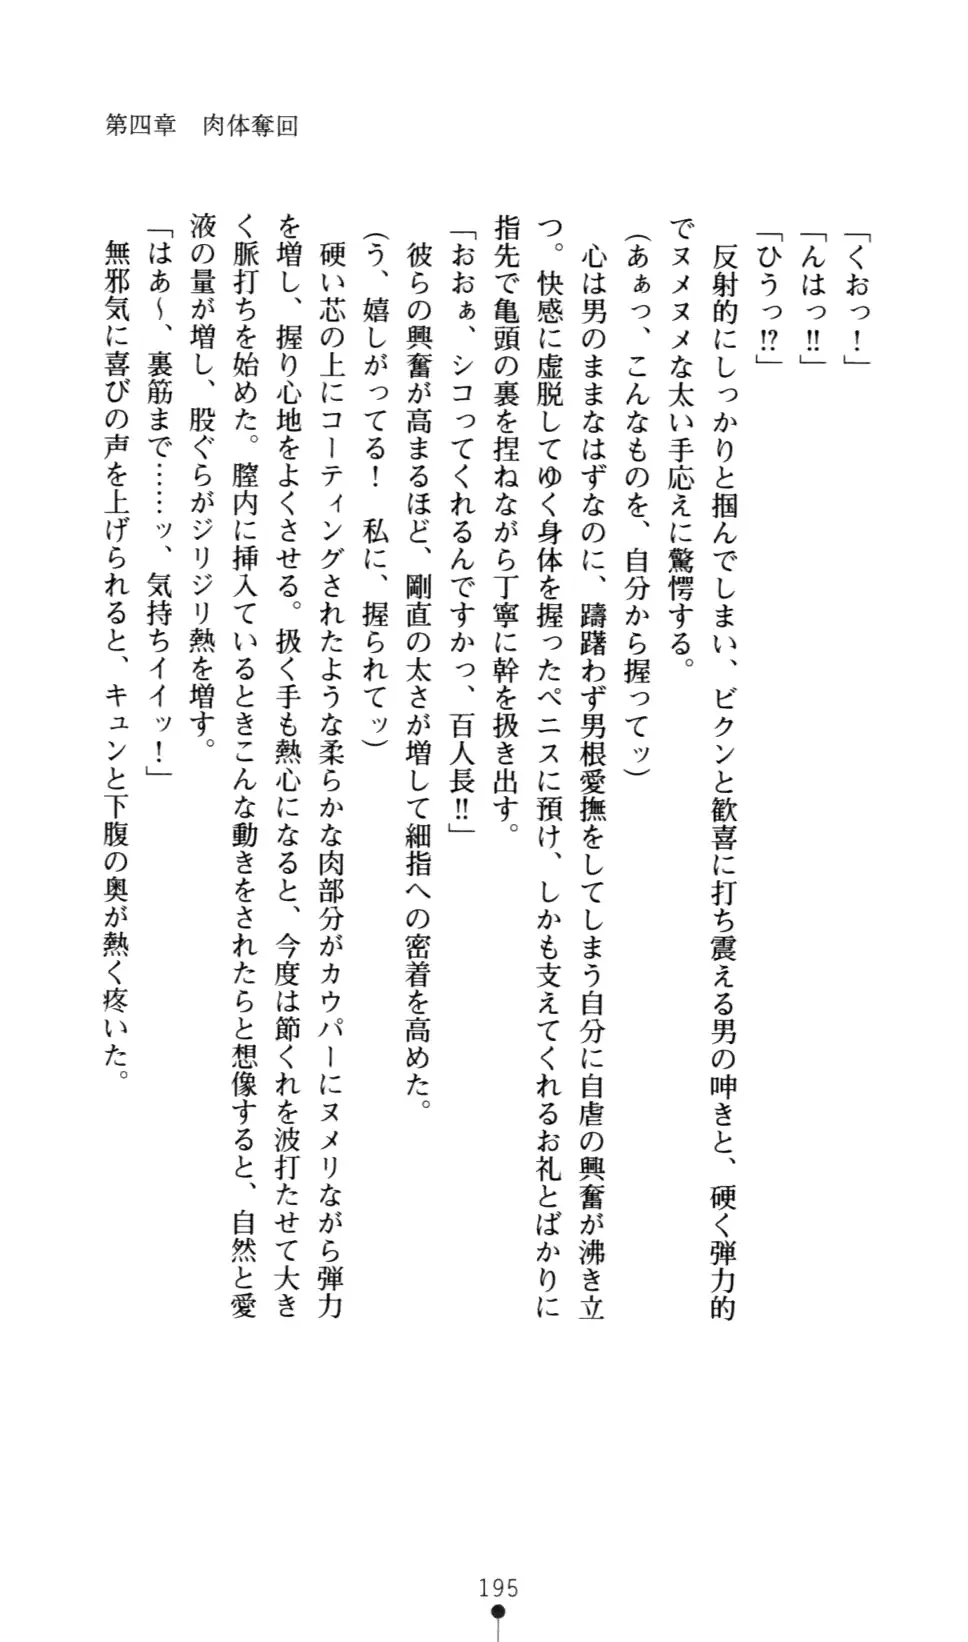 第四章　肉体奪回
「くおっ！」
「んはっ‼」
「ひうっ⁉」
　反射的にしっかりと掴んでしまい、ビクンと歓喜に打ち震える男の呻きと、硬く弾力的
でヌメヌメな太い手応えに驚愕する。
(あぁっ、こんなものを、自分から握ってッ)
　心は男のままなはずなのに、躊躇わず男根愛撫をしてしまう自分に自虐の興奮が沸き立
つ。快感に虚脱してゆく身体を握ったペニスに預け、しかも支えてくれるお礼とばかりに
指先で亀頭の裏を捏ねながら丁寧に幹を扱き出す。
「おおぉ、シコってくれるんですかっ、百人長‼」
　彼らの興奮が高まるほど、剛直の太さが増して細指への密着を高めた。
(う、嬉しがってる！　私に、握られてッ)
　硬い芯の上にコーティングされたような柔らかな肉部分がカウパーにヌメリながら弾力
を増し、握り心地をよくさせる。扱く手も熱心になると、今度は節くれを波打たせて大き
く脈打ちを始めた。膣内に挿入ているときこんな動きをされたらと想像すると、自然と愛
液の量が増し、股ぐらがジリジリ熱を増す。
「はあ〜、裏筋まで……ッ、気持ちイイッ！」
　無邪気に喜びの声を上げられると、キュンと下腹の奥が熱く疼いた。
195